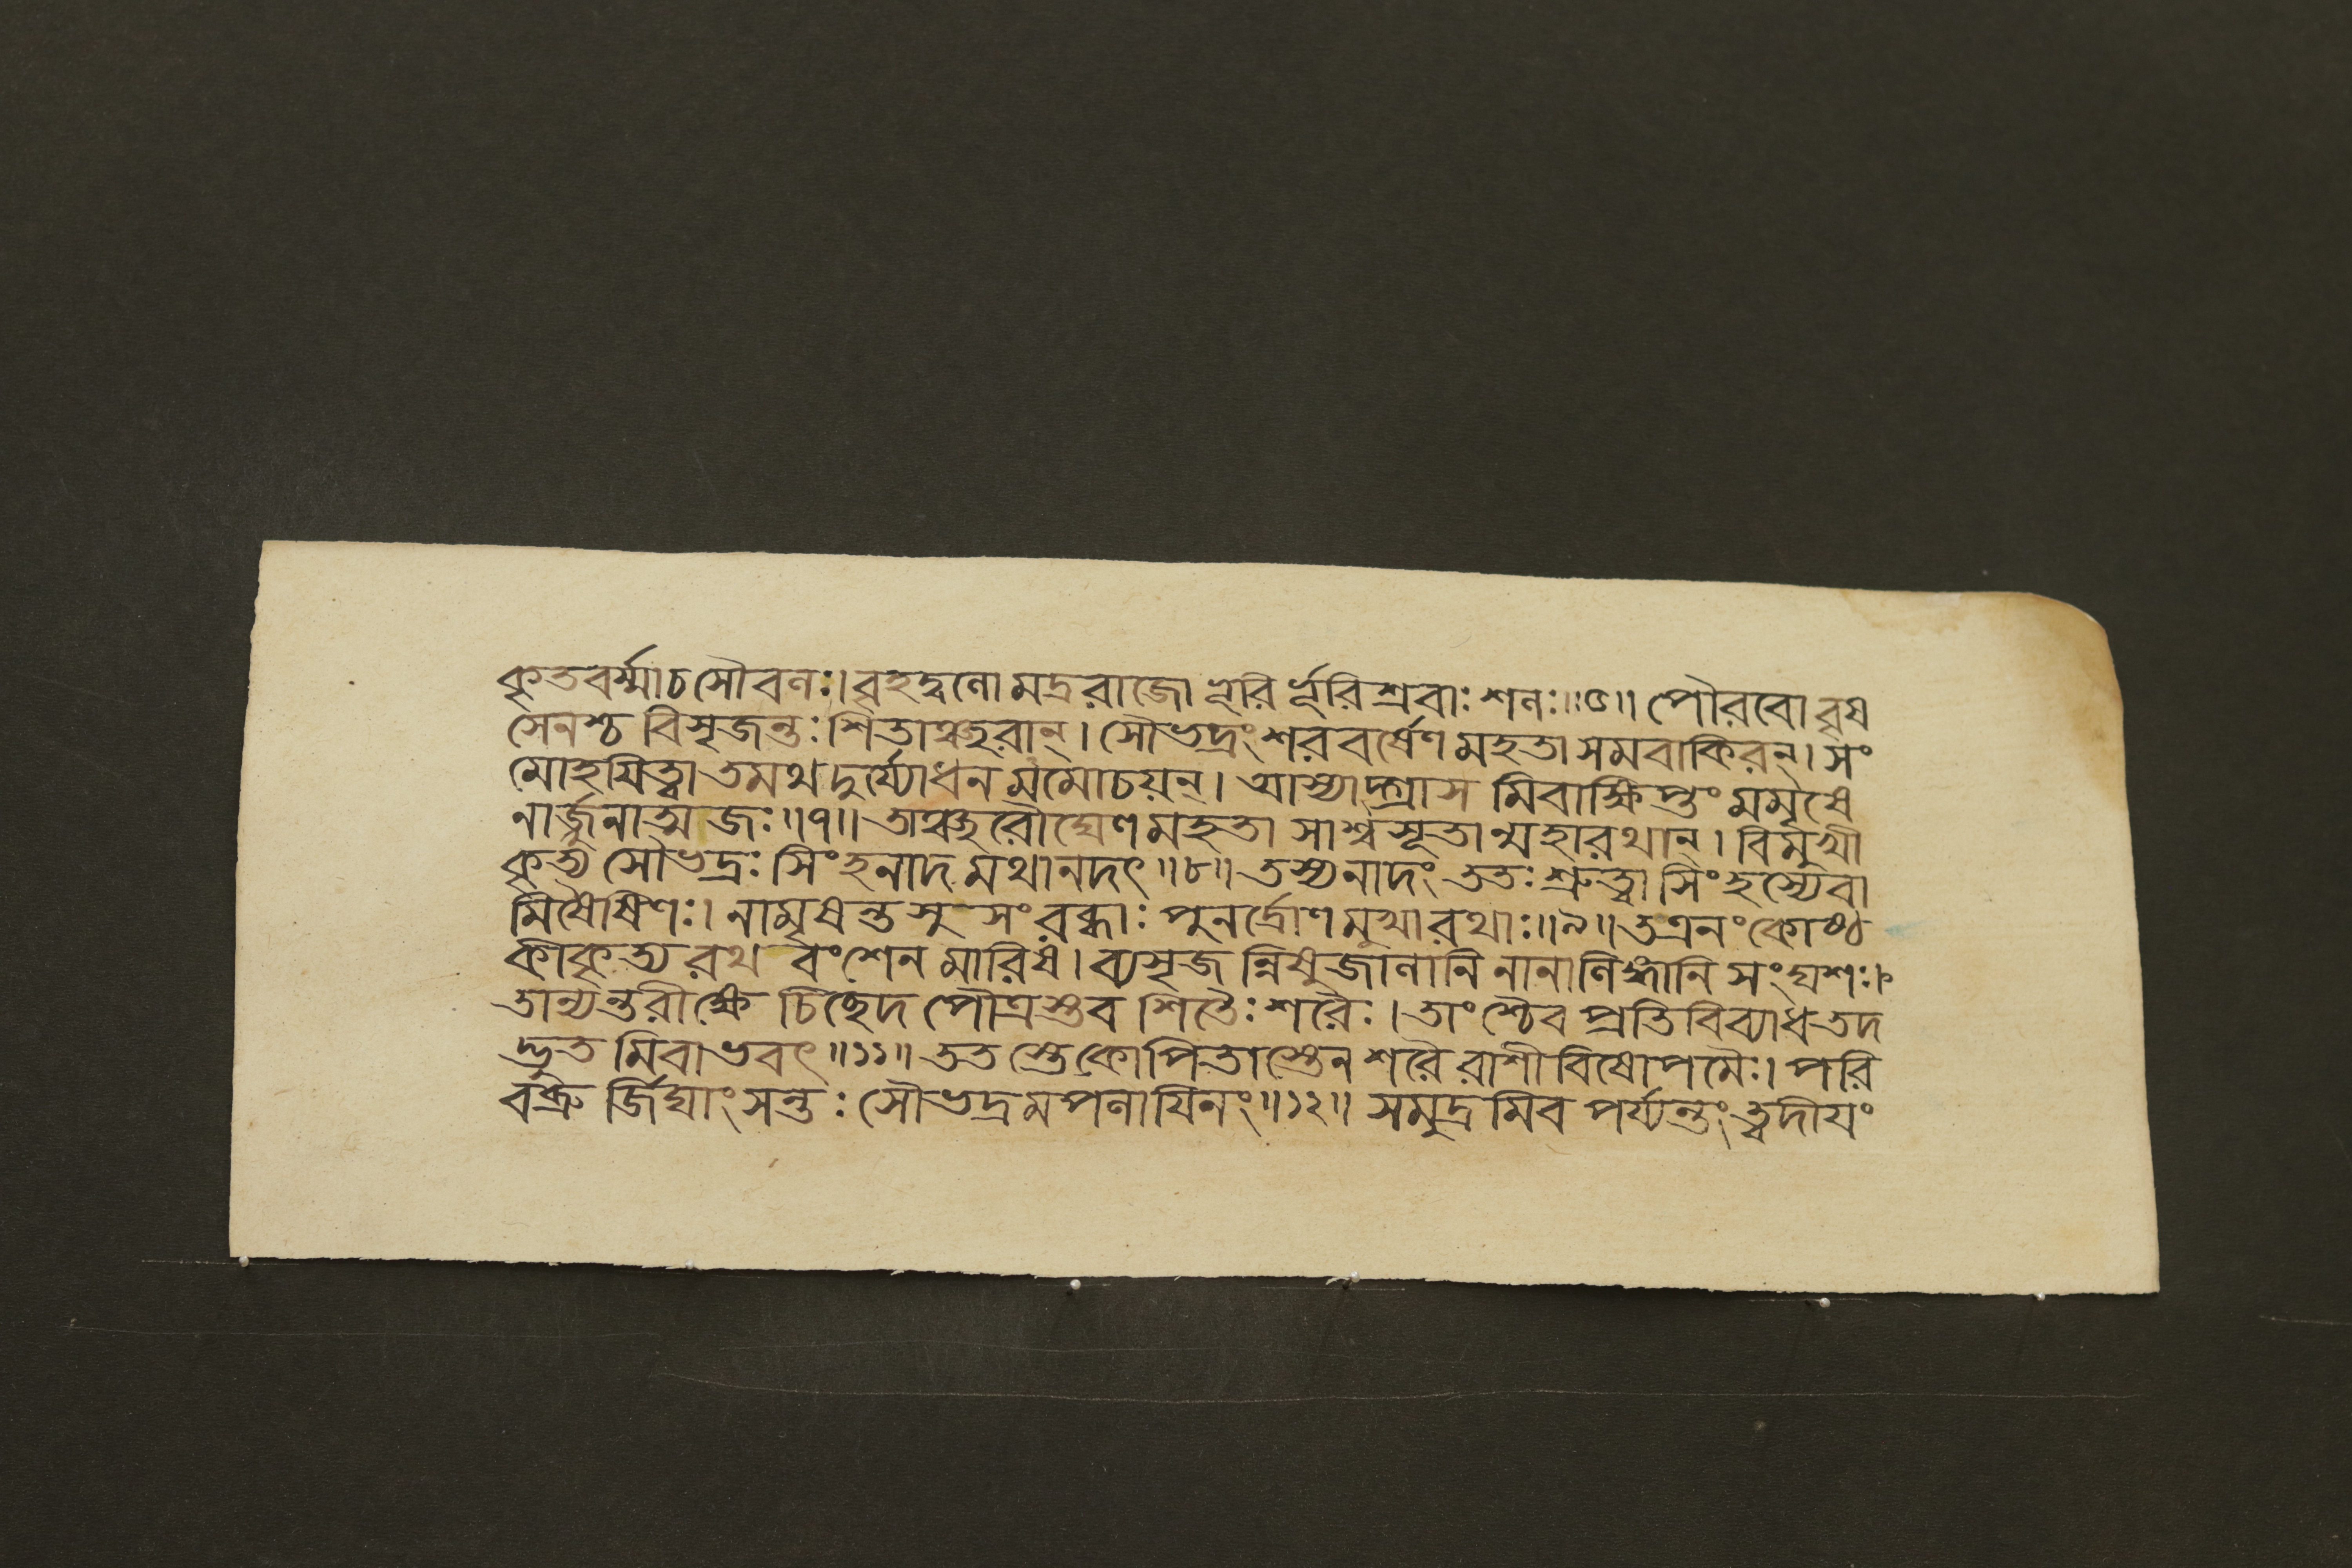 কৃতবর্ম্মাচসৌবলঃ।বৃহদ্বলোমদ্ররাজোভূরির্ভূরিশ্রবাঃশলঃ॥৫॥পৌরবোবৃষ
সেনশ্চবিসৃজন্তঃশিতাঞ্ছরান্।সৌভদ্রংশরবর্ষেণমহতাসমবাকিরন্।সং
মোহয়িত্বাতমথদুর্য্যোধনমমোচয়ন্।আস্যাদ্গ্রাসমিবাক্ষিপ্তংমমৃষে
নার্জ্জুনাত্মজঃ॥৭॥তাঞ্ছরৌঘেণমহতাসাশ্বসূতান্মহারথান্।বিমুখী
কৃত্যসৌভদ্রঃসিংহনাদমথানদৎ॥৮॥তস্যনাদংততঃশ্রুত্বাসিংহস্যেবা
মিষৈষিণঃ।নামৃষন্তসুসংরব্ধাঃপুনর্দ্রোণমুখারথাঃ॥৯॥তএনংকোষ্ঠ
কীকৃত্যরথবংশেনমারিষ।ব্যসৃজন্নিষুজালানিনানালিঙ্গানিসংঘশঃ।
তান্যন্তরীক্ষেচিচ্ছেদপৌত্রস্তবশিতৈঃশরৈঃ।তাংশ্চৈবপ্রতিবিব্যাধতদ
দ্ভুতমিবাভবৎ॥১১॥ততস্তেকোপিতাস্তেনশরৈরাশীবিষোপমৈঃ।পরি
বব্রুর্জিঘাংসন্তঃসৌভদ্রমপলায়িনং॥১২॥সমুদ্রমিবপর্য্যন্তংত্বদীয়ং